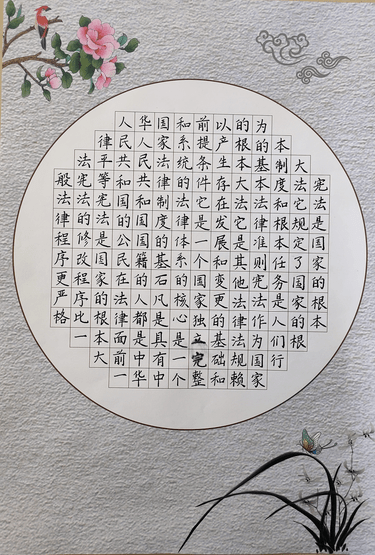 宪法是国家的根本
大法它规定了国家的根
本制度和根本任务是人们行
为的基本法律准则宪法作为国家
的根本大法它是其他法律法规赖
以产生存在发展和变更的基础和
前提条件它是一个国家独立完整
和系统的法律体系的核心是一个
国家法律制度的基石凡是具有中
华人民共和国国籍的人都是中华
人民共和国的公民在法律面前一
律平等宪法是国家的根本大
法宪法的修改程序比一
般法律程序更严格